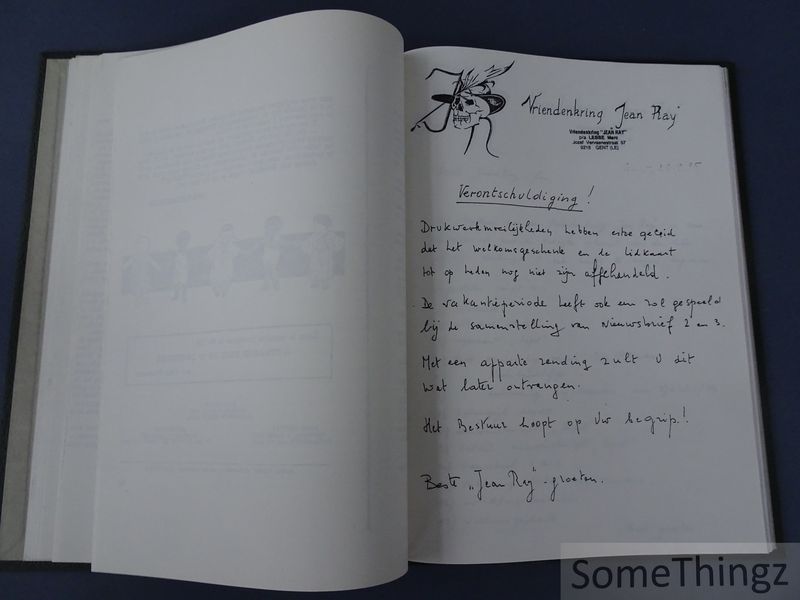 Vriendenkring Jean Ray
Vriendenkring "JEAN RAY"
p/a LEBBE Marc
Jozef Vervaenestraat 57
9219 GENT (LE)
Verontschuldiging!
Drukwerkmoeilijkheden hebben ertoe geleid
dat het welkomsgeschenk en de lidkaart
tot op heden nog niet zijn affehandeld.
De vakantieperiode heeft ook een rol gespeeld
bij de samenstelling van Nieuwsbrief 2 en 3.
Met een apparte zending zult U dit
wat later ontvangen.
Het Bestuur hoopt op Uw begrip!
Beste "Jean Ray" - groeten.
SomeThingz